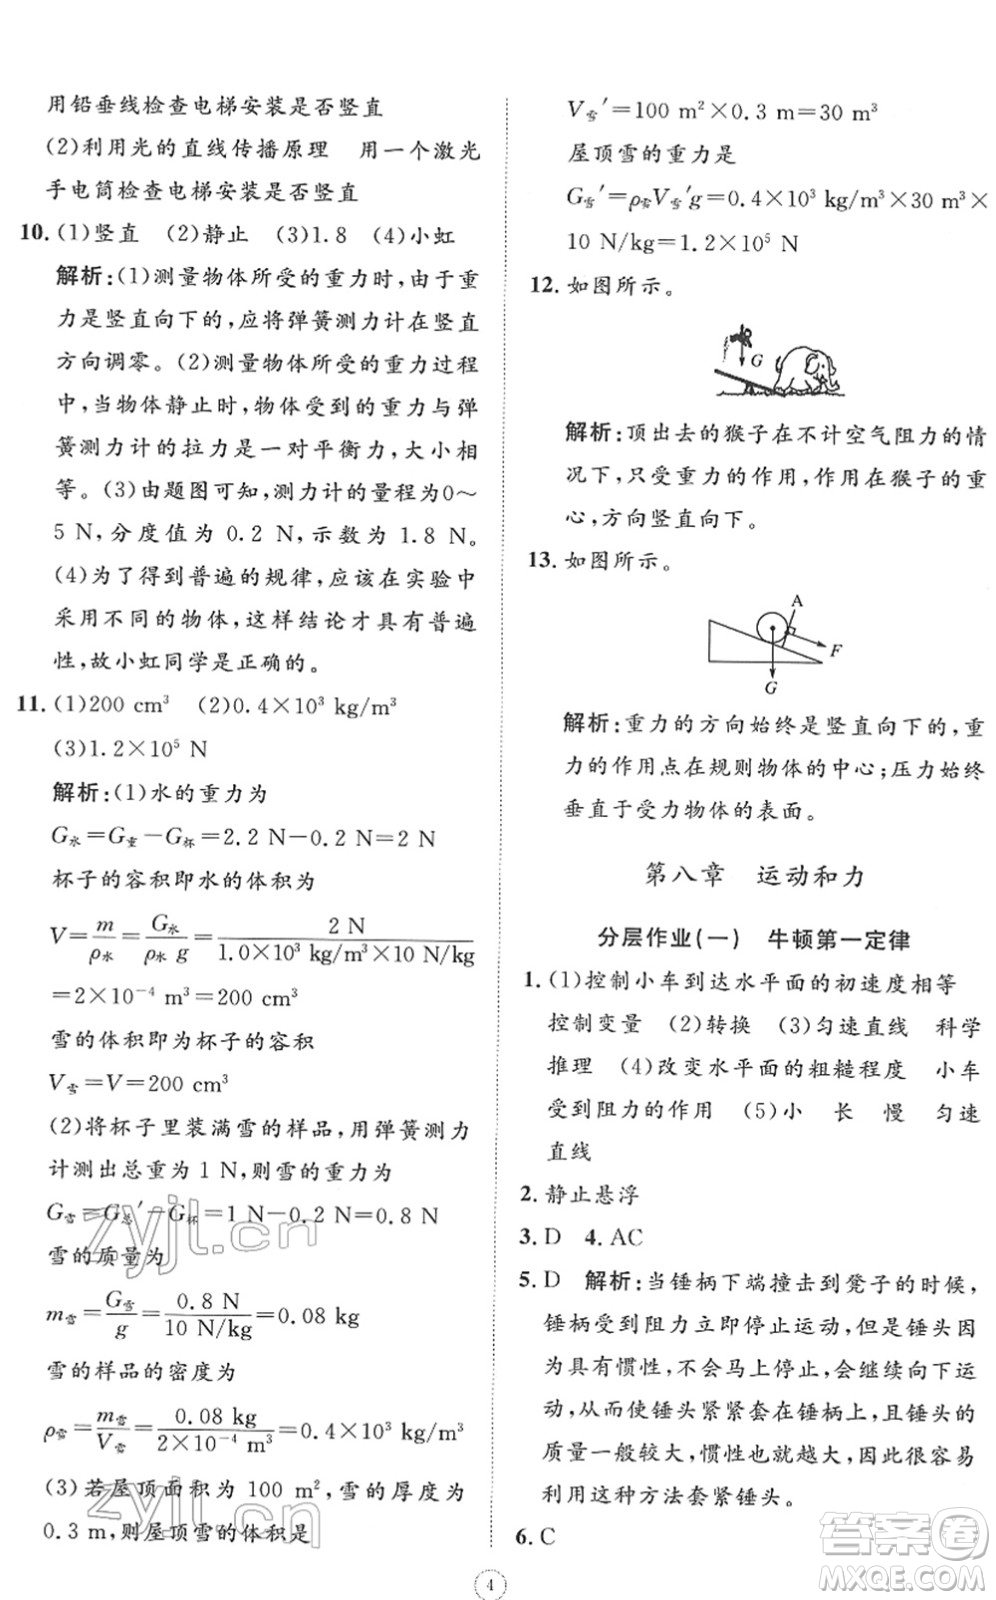 用铅垂线检查电梯安装是否竖直
(2)利用光的直线传播原理　用一个激光
手电筒检查电梯安装是否竖直
10. (1)竖直　(2)静止　(3)1.8　(4)小虹
解析:(1)测量物体所受的重力时,由于重
力是竖直向下的,应将弹簧测力计在竖直
方向调零。(2)测量物体所受的重力过程
中,当物体静止时,物体受到的重力与弹
簧测力计的拉力是一对平衡力,大小相
等。(3)由题图可知,测力计的量程为0～
5 N,分度值为 0.2 N,示数为 1.8 N。
(4)为了得到普遍的规律,应该在实验中
采用不同的物体,这样结论才具有普遍
性,故小虹同学是正确的。
11. (1)200 cm³　(2)0.4×10³ kg/m³
(3)1.2×10⁵ N
解析:(1)水的重力为
G水=G重−G杯=2.2 N−0.2 N=2 N
杯子的容积即水的体积为
V=m/ρ水=G水/(ρ水 g)=2 N/(1.0×10³ kg/m³×10 N/kg)
=2×10⁻⁴ m³=200 cm³
雪的体积即为杯子的容积
V雪=V=200 cm³
(2)将杯子里装满雪的样品,用弹簧测力
计测出总重为 1 N,则雪的重力为
G雪=G总′−G杯=1 N−0.2 N=0.8 N
雪的质量为
m雪=G雪/g=0.8 N/(10 N/kg)=0.08 kg
雪的样品的密度为
ρ雪=m雪/V雪=0.08 kg/(2×10⁻⁴ m³)=0.4×10³ kg/m³
(3)若屋顶面积为 100 m²,雪的厚度为
0.3 m,则屋顶雪的体积是
V雪′=100 m²×0.3 m=30 m³
屋顶雪的重力是
G雪′=ρ雪V雪′g=0.4×10³ kg/m³×30 m³×
10 N/kg=1.2×10⁵ N
12. 如图所示。
G
解析:顶出去的猴子在不计空气阻力的情
况下,只受重力的作用,作用在猴子的重
心,方向竖直向下。
13. 如图所示。
A
F
G
解析:重力的方向始终是竖直向下的,重
力的作用点在规则物体的中心;压力始终
垂直于受力物体的表面。
第八章　运动和力
分层作业(一)　牛顿第一定律
1. (1)控制小车到达水平面的初速度相等
控制变量　(2)转换　(3)匀速直线　科学
推理　(4)改变水平面的粗糙程度　小车
受到阻力的作用　(5)小　长　慢　匀速
直线
2. 静止悬浮
3. D　4. AC
5. D　解析:当锤柄下端撞击到凳子的时候,
锤柄受到阻力立即停止运动,但是锤头因
为具有惯性,不会马上停止,会继续向下运
动,从而使锤头紧紧套在锤柄上,且锤头的
质量一般较大,惯性也就越大,因此很容易
利用这种方法套紧锤头。
6. C
4
zyjl.cn
zyjl.cn
答案卷
MXQE.COM